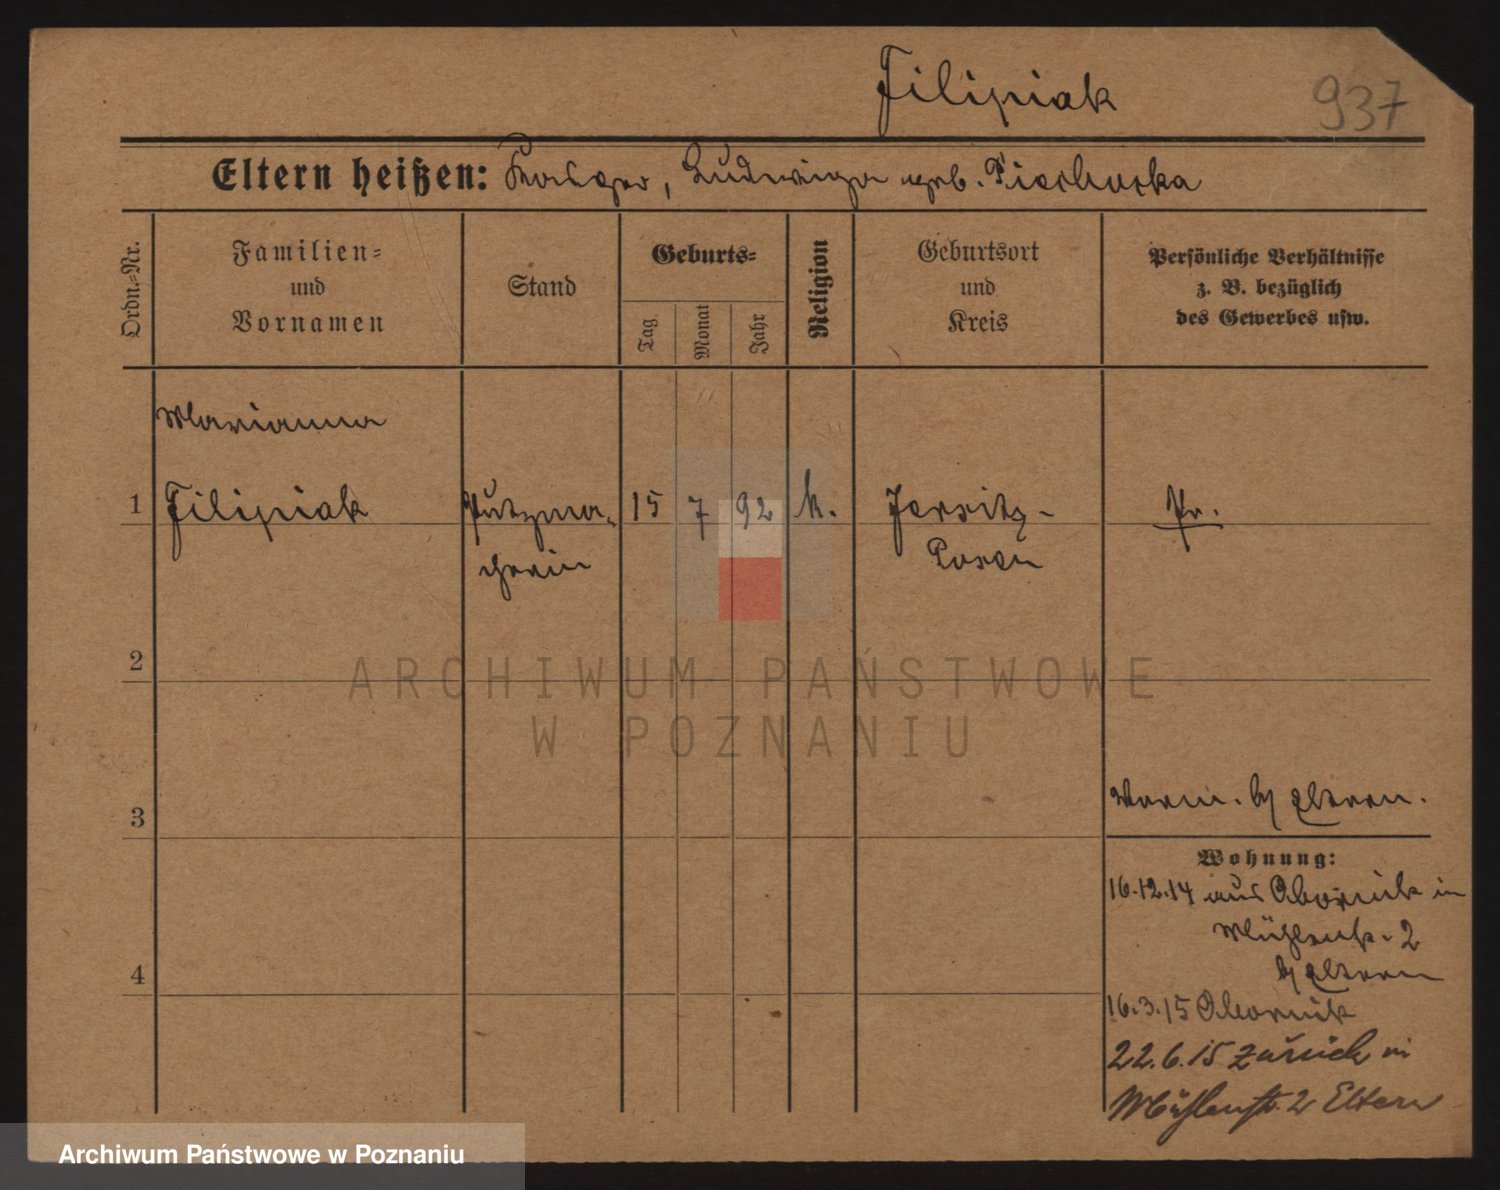 Filipiak
937
Eltern heißen: Kasper, Ludwiga geb. Piechocka
Ordn.-Nr.
Familien-
und
Vornamen
Stand
Geburts-
Tag
Monat
Jahr
Religion
Geburtsort
und
Kreis
Persönliche Verhältnisse
z. B. bezüglich
des Gewerbes usw.
Marianna
1 Filipiak Putzma- 15 7 92 k. Jersitz- Pr.
cherin Posen
2
ARCHIWUM PAŃSTWOWE
W POZNANIU
3
b/ Eltern.
Wohnung:
16.12.14 aus Obornik in
Mühlenstr. 2
b/ Eltern
4
16.3.15 Obornik
22.6.15 zurück in
Mühlenstr. 2 Eltern
Archiwum Państwowe w Poznaniu